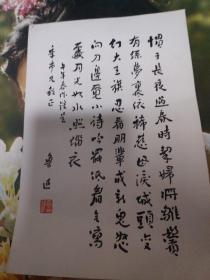 慣于長夜過春時挈婦將雛鬢
有絲夢裏依稀慈母淚城頭變
幻大王旗忍看朋輩成新鬼怒
向刀邊覓小詩吟罷低眉無寫
處月光如水照緇衣
午年春作錄呈
季市吾兄教正
魯迅